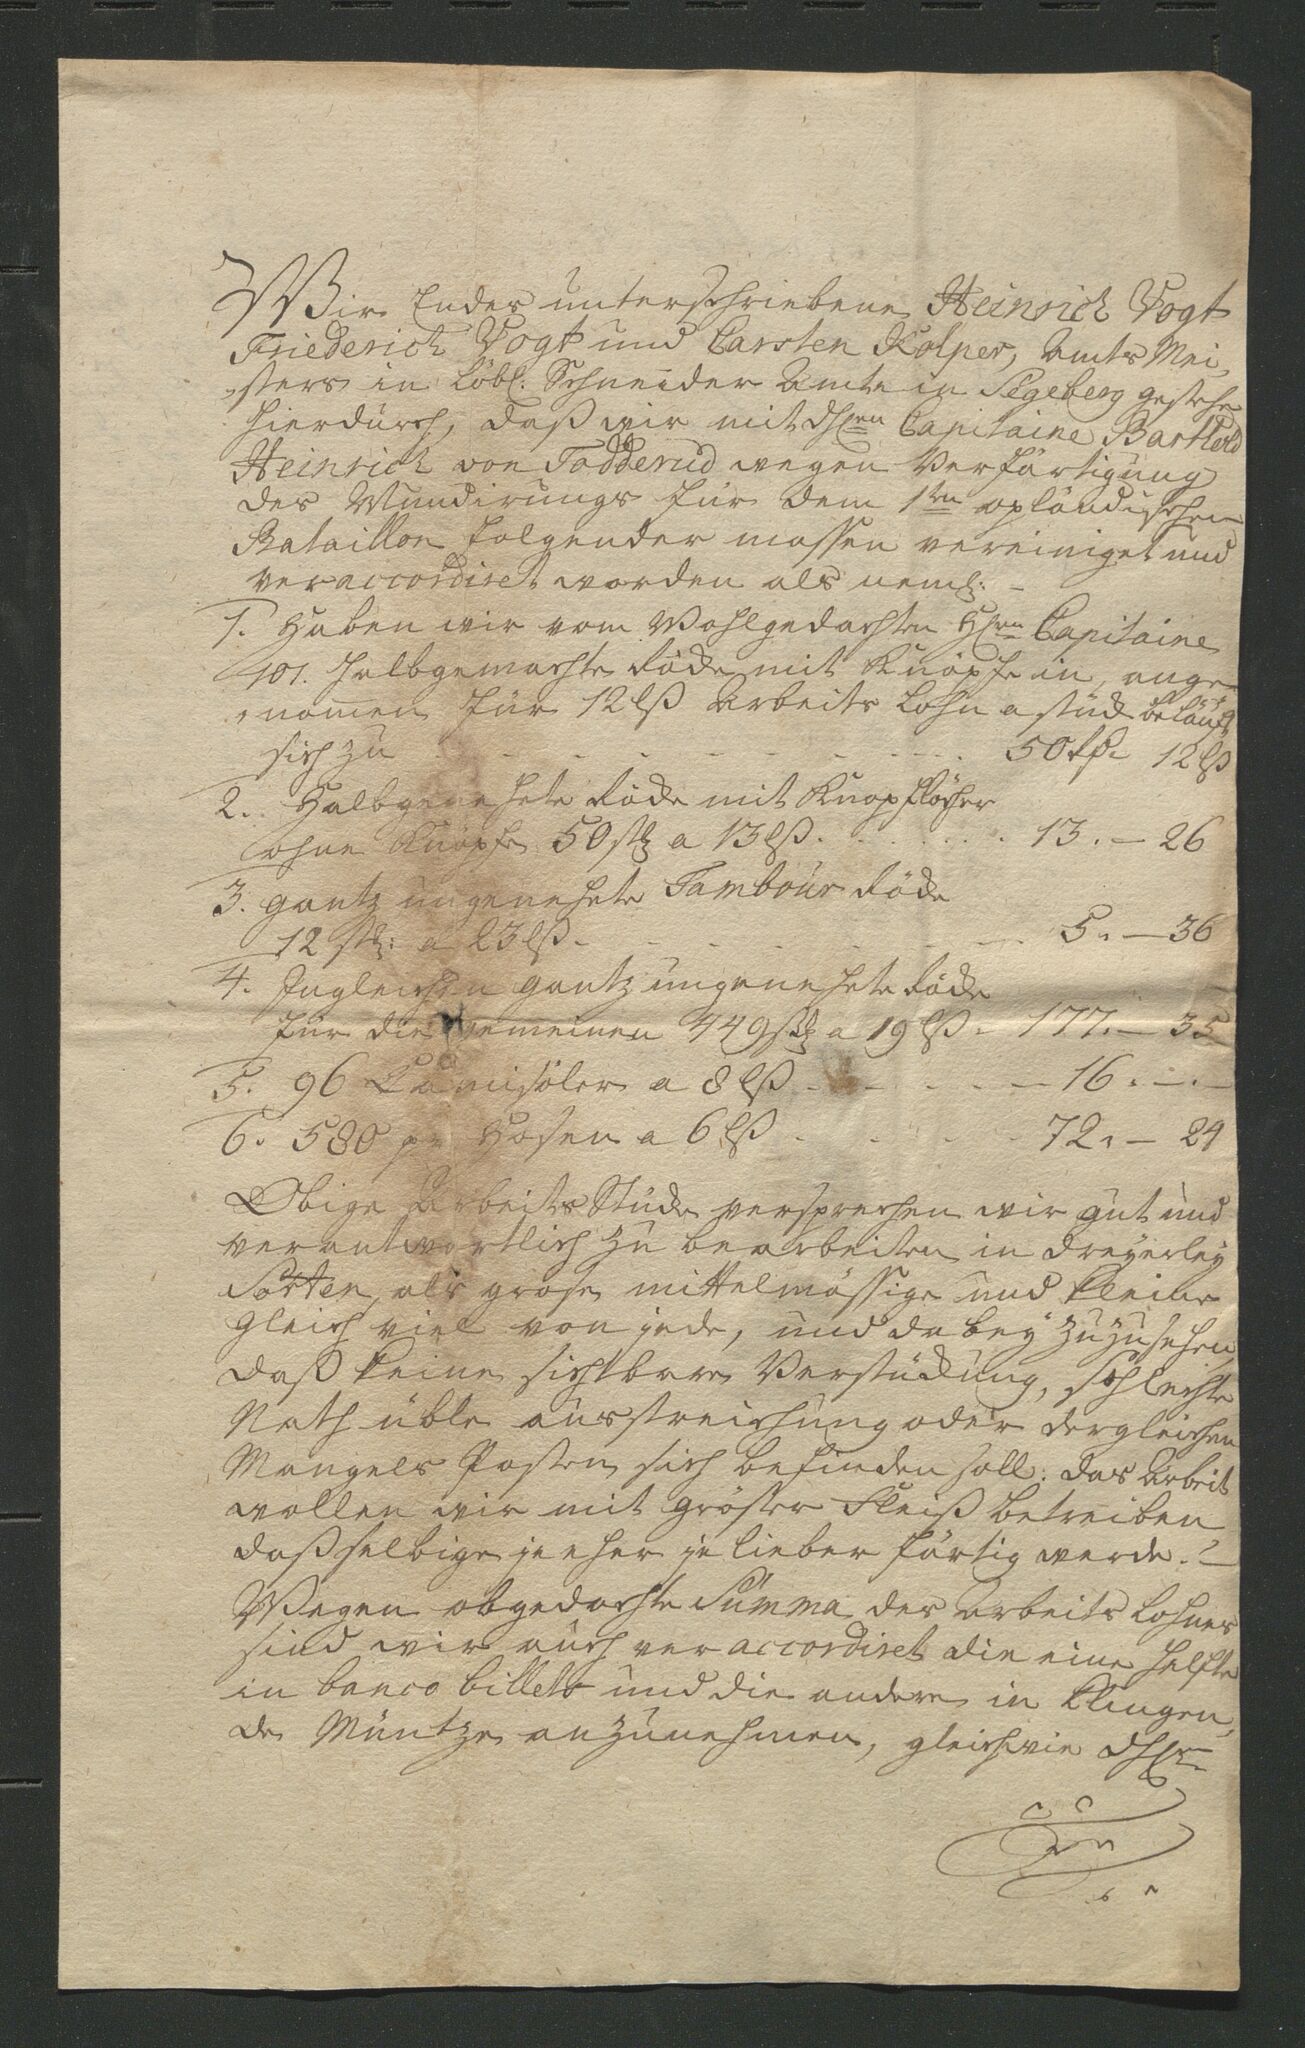 Wir Endes unterschriebene Heinrich Vogt
Friederich Vogt und Carsten Kolper, Amts Mei,
,sters in Löbl. Schneider Amte in Segeberg gestehen
hierdurch, daß wir mit dHren Capitaine Barthold
Heinrich von Todderud wegen Verfärtigung
der Mundirungs für dem 1ten oplöndischen
Bataillon folgender massen vereiniget und
veraccordiret worden als neml: -
1. Haben wir vom Wohlgedachten Hren Capitaine
101. halbgemachte Röcke mit Knöpfe in, ange
,nomen für 12 lß Arbeits Lohn a stück beläuft
sich zu . - - - - - - - . 50 rh 12 lß
2. Halbgenehete Röcke mit Knopflöcher
ohne Knöpfe 50 stk a 13 lß. . . . . 13. - 26
3. gantz ungenehete Tambour Röcke
12 stk: a 23 lß. - - - - - - 5. - 36
4. Ingleichen gantz ungenehete Röcke
für die Gemeinen 449 stk a 19 lß - 177. - 35
5. 96 Camisöler a 8 lß - - - - - 16. - . -
6. 580 pr Hosen a 6 lß . . . . . 72. - 24
Obige Arbeits Stücke versprechen wir gut und
verantwortlich zu bearbeiten in dreyerley
Sorten, als grose mittelmässige und kleine
gleich viel von jede, und dabey zuzusehen,
daß keine sichtbare Verstückung, schlechte
Nath üble ausstreichung oder dergleichen
Mangels Posten sich befinden soll. Das Arbeit
wollen wir mit gröster Fleiß betreiben
daß selbige je eher je lieber färtig werde. -
Wegen obgedachte Summa der Arbeits Lohnes
sind wir auch veraccordiret die eine Helfte
in banco billets und die andere in klingen,
de Müntze anzunehmen, gleichwie dHr